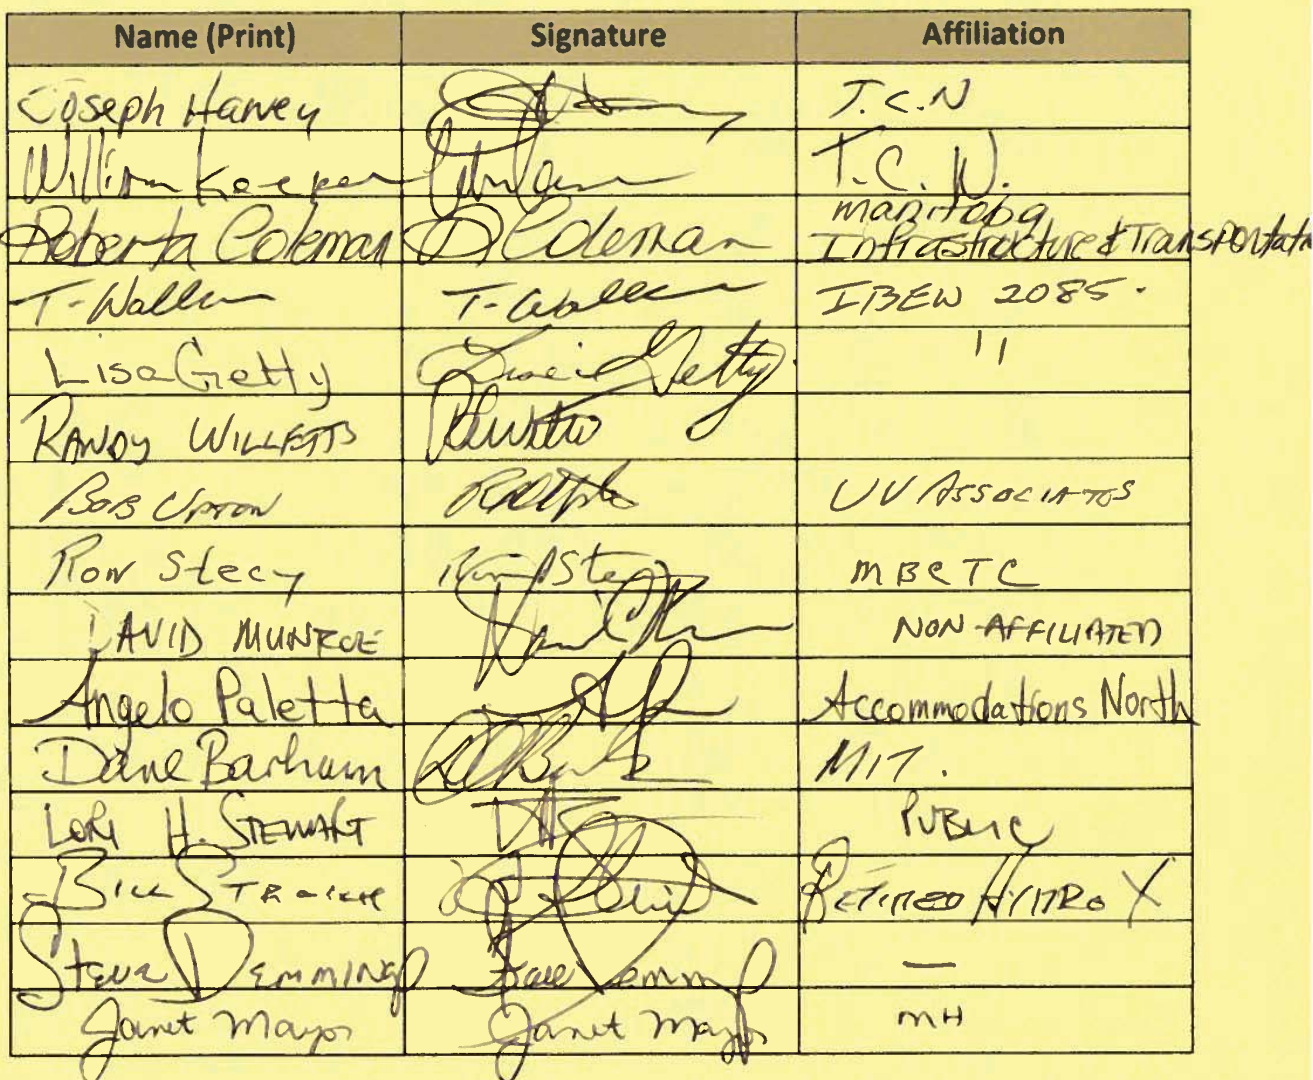 Name (Print) Signature Affiliation
Joseph Harvey T.C.N
William Keeper T.C.N.
Roberta Coleman R Coleman Manitoba
Infrastructure & Transportatn
T-Walker T-Walker IBEW 2085.
Lisa Getty Getty 11
RANDY WILLETTS
BOB UPTON UV ASSOCIATES
Ron Stecy Stecy MBCTC
DAVID MUNROE NON-AFFILIATED
Angelo Paletta Accommodations North
Dane Barham MIT.
LORI H. STEWART PUBLIC
BILL RETIRED HYDRO X
STEVE DEMMING —
Janet Mayor Janet Mayor MH